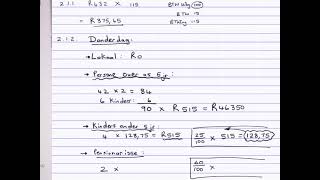 2.1.1 R432 x 115 BTW Uitg 100
BTW 15
= R375,65 BTW Ing 115
2.1.2. Donderdag:
→ Lokaal: R0
→ Persone over as 5 jr:
42 x 2 = 84
6 Kinders: 6
90 x R515 = R46350
→ Kinders onder 5 jr
4 x 128,75 = R515
25/100 x 515 = 128,75
→ Pensionarisse:
2 x
60/100 x